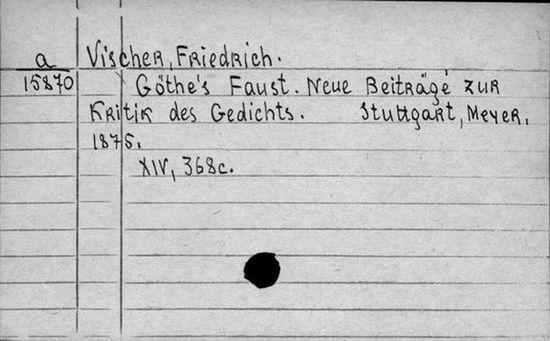 a Vischer, Friedrich.
15870 Göthe's Faust. Neue Beiträge zur
Kritik des Gedichts. Stuttgart, Meyer.
1875.
XIV, 368c.